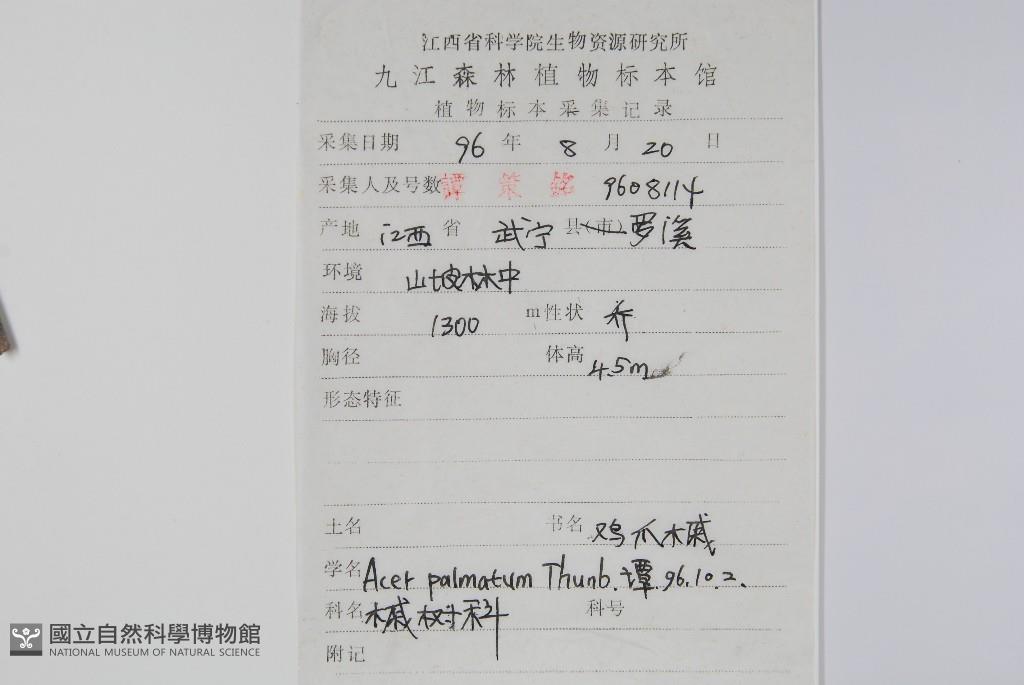 江西省科学院生物资源研究所
九江森林植物标本馆
植物标本采集记录
采集日期 96 年 8 月 20 日
采集人及号数 譚策銘 9608114
产地 江西 省 武宁 县(市)罗溪
环境 山坡林中
海拔 1300 m 性状 乔
胸径 体高 4.5m
形态特征
土名 书名 鸡爪槭
学名 Acer palmatum Thunb. 谭 96.10.2.
科名 槭树科 科号
附记
國立自然科學博物館
NATIONAL MUSEUM OF NATURAL SCIENCE